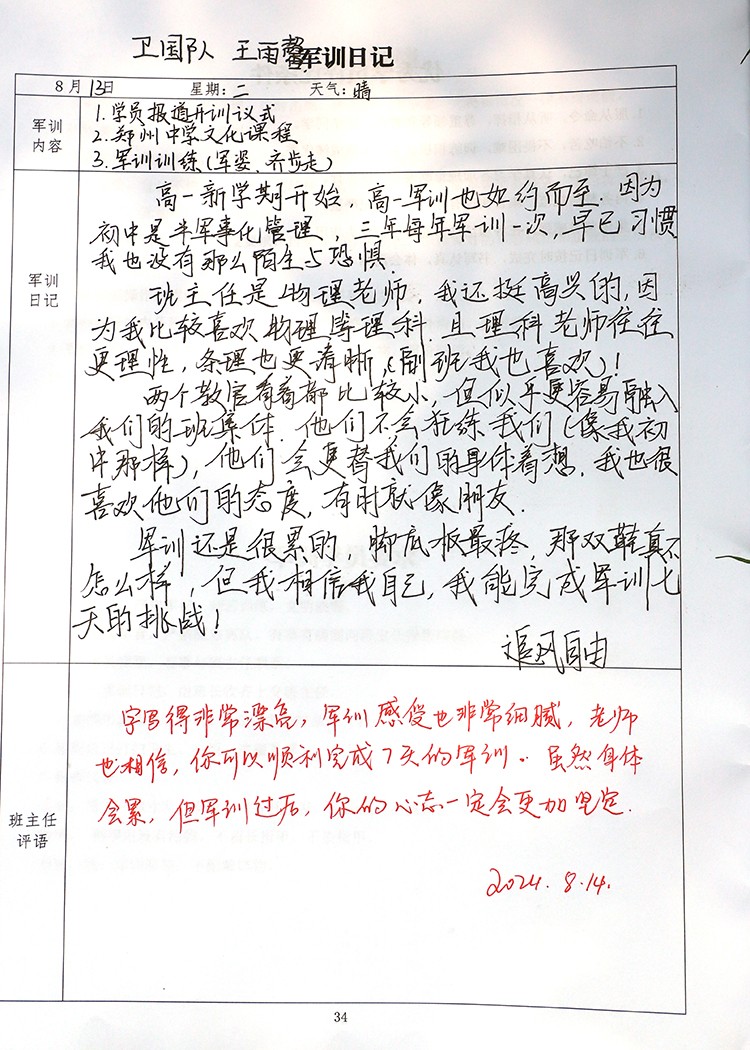 卫国队 王雨馨军训日记
8月13日 星期:二 天气:晴
军训内容
1.学员报道开训议式
2.郑州中学文化课程
3.军训训练(军姿、齐步走)
军训日记
高一新学期开始,高一军训也如约而至.因为
初中是半军事化管理,三年每年军训一次,早已习惯
我也没有那么陌生与恐惧.
班主任是物理老师,我还挺高兴的,因
为我比较喜欢物理等理科.且理科老师往往
更理性,条理也更清晰,(副班我也喜欢)!
两个教官看着都比较小,但似乎更容易融入
我们的班集体.他们不会狂练我们(像我初
中那样),他们会更替我们的身体着想,我也很
喜欢他们的态度,有时就像朋友.
军训还是很累的,脚底板最疼,那双鞋真不
怎么样,但我相信我自己,我能完成军训七
天的挑战!
追风自由
班主任评语
字写得非常漂亮,军训感受也非常细腻,老师
也相信,你可以顺利完成7天的军训。虽然身体
会累,但军训过后,你的心志一定会更加坚定.
2024.8.14.
34